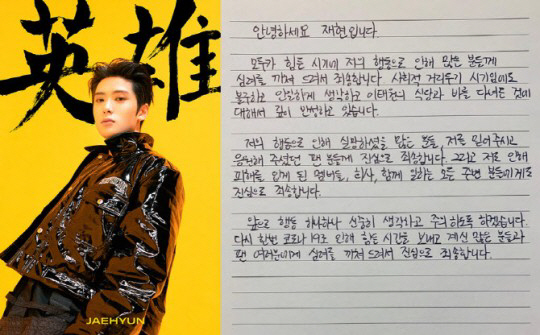 英雄
JAEHYUN
안녕하세요 재현입니다.
모두가 힘든 시기에 저의 행동으로 인해 많은 분들께
심려를 끼쳐 드려서 죄송합니다. 사회적 거리두기 시기임에도
불구하고 안일하게 생각하고 이태원의 식당과 바를 다녀온 것에
대해서 깊이 반성하고 있습니다.
저의 행동으로 인해 실망하셨을 많은 분들, 저를 믿어주시고
응원해 주셨던 팬 분들께 진심으로 죄송합니다. 그리고 저로 인해
피해를 입게 된 멤버들, 회사, 함께 일하는 모든 주변 분들에게도
진심으로 죄송합니다.
앞으로 행동 하나하나 신중히 생각하고 주의하도록 하겠습니다.
다시 한번 코로나 19로 인해 힘든 시간을 보내고 계신 많은 분들과
팬 여러분에게 심려를 끼쳐 드려서 진심으로 죄송합니다.